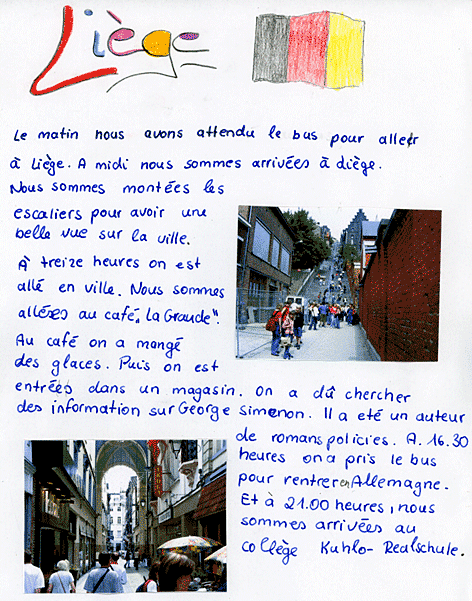 Liège
Le matin nous avons attendu le bus pour aller
à Liège. A midi nous sommes arrivées à Liège.
Nous sommes montées les
escaliers pour avoir une
belle vue sur la ville.
À treize heures on est
allé en ville. Nous sommes
allées au café „la Grande".
Au café on a mangé
des glaces. Puis on est
entrées dans un magasin. On a dû chercher
des information sur George Simenon. Il a eté un auteur
de romans policies. A. 16.30
heures on a pris le bus
pour rentrer en Allemagne.
Et à 21.00 heures, nous
sommes arrivées au
collège Kuhlo-Realschule.